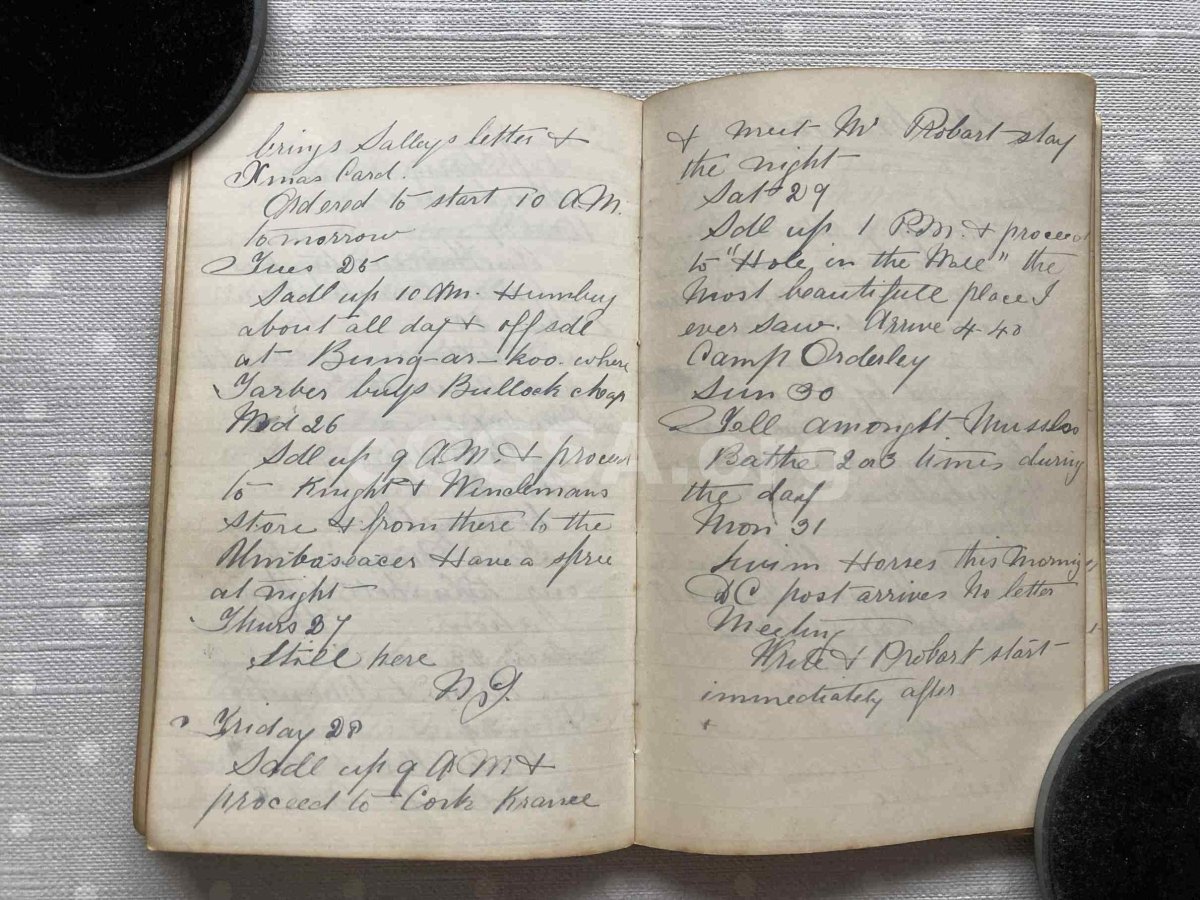 brings Salleys letter &
Xmas Card.
Ordered to start 10 A.M.
tomorrow
Tues 25
Sadl up 10 AM. Humbug
about all day & off sdl
at Bung-ar-koo. where
Tarber buys Bullock cheap
Wed 26
Sdl up 9 A.M. & proceed
to Knight & Windemans
store & from there to the
Umbaseacer Have a spree
at night
Thurs 27
Still here
Friday 28
Sadl up 9 A M &
proceed to Cork Kranee
& meet Mr Robart stay
the night
Sat 29
Sdl up 1 P.M. & proceed
to "Hole in the Wall" the
most beautifull place I
ever saw. Arrive 4-40
Camp Orderley
Sun 30
Fell amongst Mussles
Bathe 2 or 3 times during
the day
Mon 31
Swim Horses this Morning
DC post arrives No letter
Meeting
Write & Probart start
immediately after
eGGSA.org